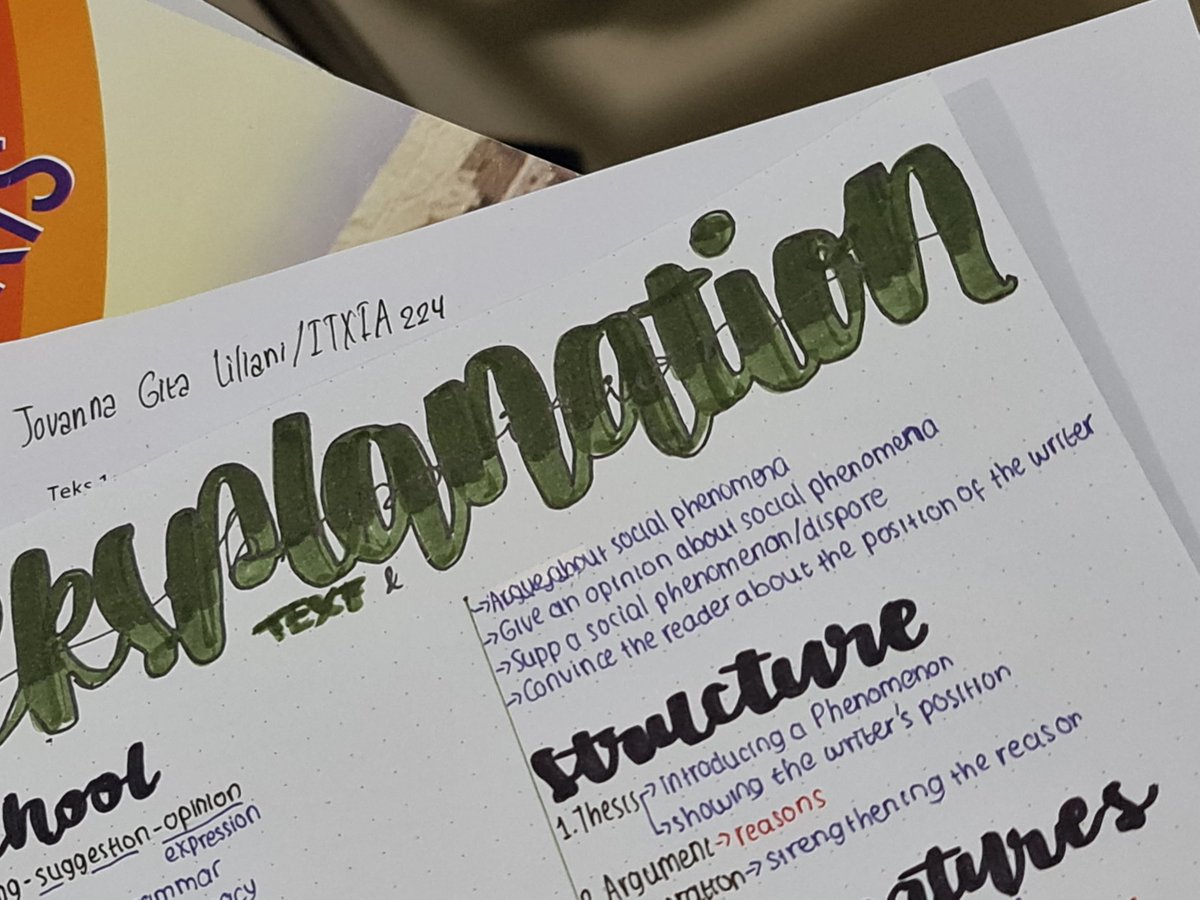 Jovanna Gita Liliani/ITXIA 224
Teks 1
Eksplanation
TEXT &
→Argue about social phenomena
→Give an opinion about social phenomena
→Supp a social phenomenon/dispore
→Convince the reader about the position of the writer
structure
1. Thesis→Introducing a Phenomenon
↳showing the writer's position
Argument→reasons
→strengthening the reason
-suggestion-opinion
expression